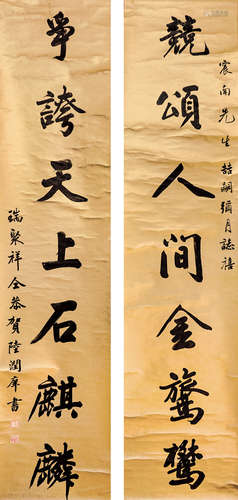 宸南先生喆嗣彌月誌禧
競頌人間金鸑鷟
爭誇天上石麒麟
瑞聚祥仝恭賀陸潤庠書